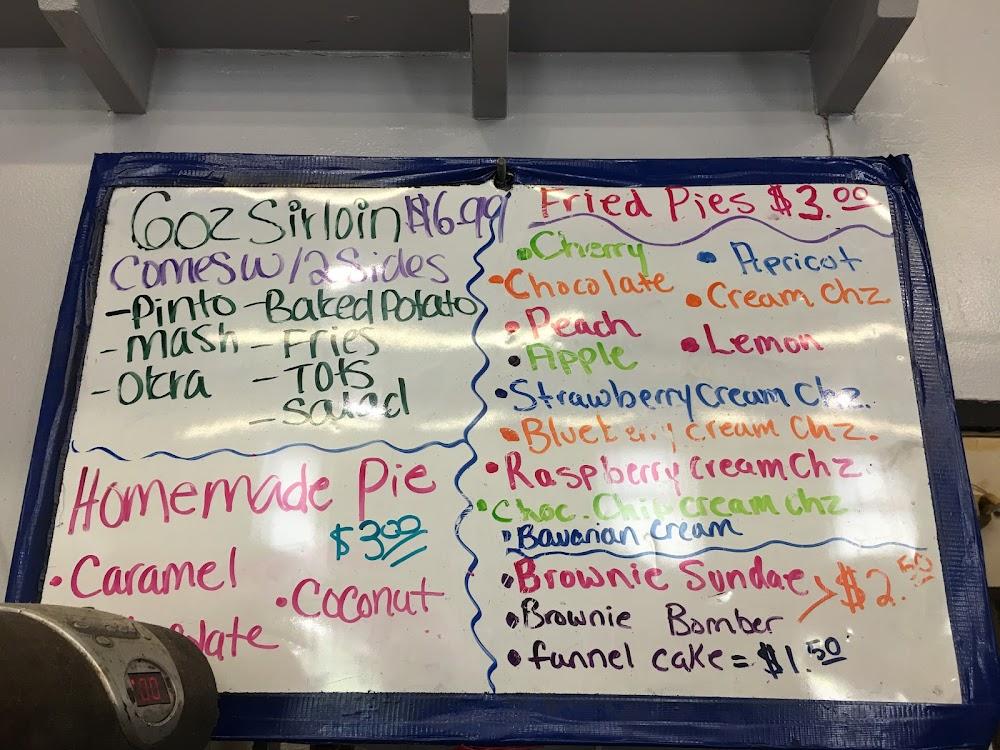 6oz Sirloin $16.99
Comes w/2 Sides
-Pinto -Baked Potato
-Mash -Fries
-Okra -Tots
-Salad
Homemade Pie
$3.00
•Caramel
•Coconut
Fried Pies $3.00
•Cherry •Apricot
•Chocolate •Cream Chz
•Peach •Lemon
•Apple
•Strawberry Cream Chz.
•Blueberry cream Chz.
•Raspberry Cream Chz
•Choc. Chip cream chz
•Bavarian Cream
•Brownie Sundae > $2.50
•Brownie Bomber
•funnel cake = $1.50